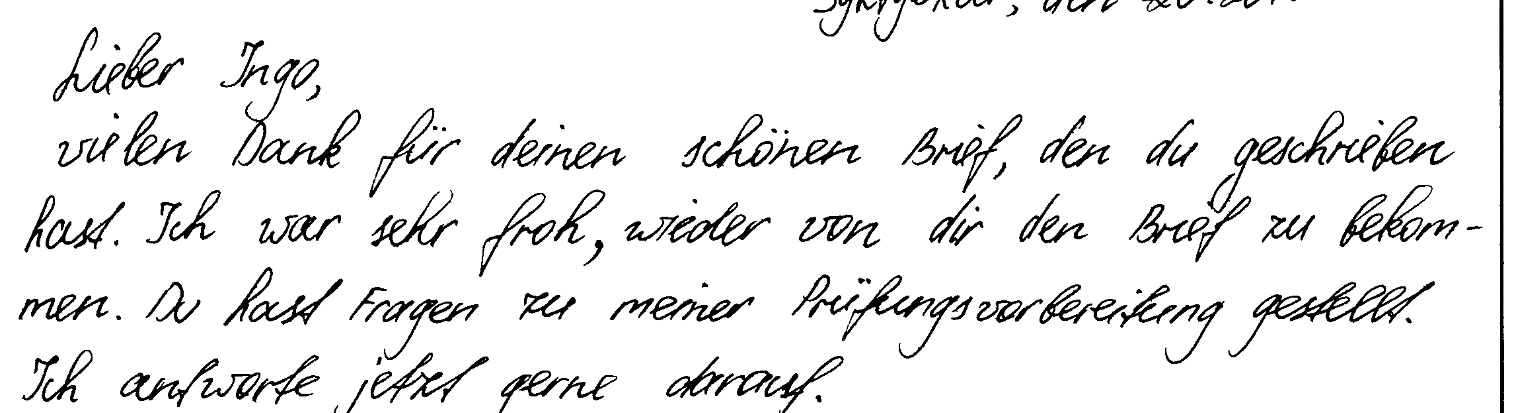 den
Lieber Ingo,
vielen Dank für deinen schönen Brief, den du geschrieben
hast. Ich war sehr froh, wieder von dir den Brief zu bekom-
men. Du hast Fragen zu meiner Prüfungsvorbereitung gestellt.
Ich antworte jetzt gerne darauf.